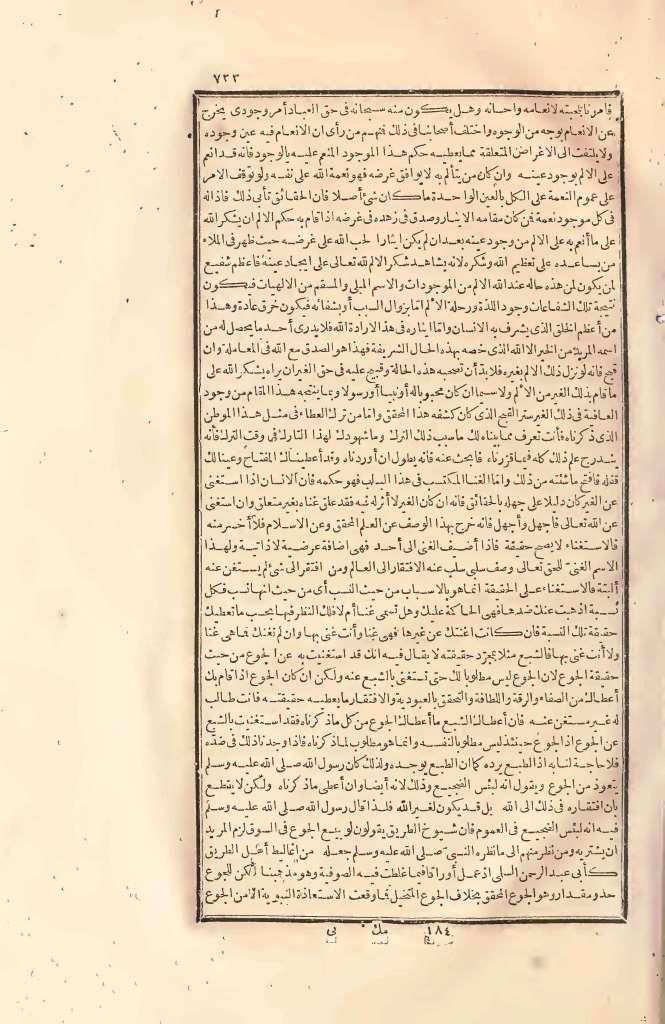 ٧٣٣
فأمرنا بمحبته لانعامه واحسانه وهل يكون منه سبحانه فى حق العباد أمر وجودى يخرج
عن الانعام بوجه من الوجوه واختلف أصحابنا فى ذلك فمنهم من رأى ان الانعام فيه عين وجوده
ولا يلتفت الى الاغراض المتعلقة مما يعطيه حكم هذا الموجود المنعم عليه بالوجود فانه قد انعم
على الالم بوجود عينه وان كان من يتألم به لا يوافق غرضه فهو نعمة الله على نفسه ولو توقف الامر
على عموم النعمة على الكل بالعين الواحدة ما كان شئ أصلا فان الحقائق تأبى ذلك فاذا له
فى كل موجود نعمة فمن كان مقامه الايثار وصدق فى زهده فى غرضه اذا قام به حكم الالم ان يشكر الله
على ما أنعم به على الالم من وجود عينه بعد ان لم يكن ايثارا لحب الله على غرضه حيث ظهر فى الملاء
من يساعده على تعظيم الله وشكره لانه يشاهد شكر الالم لله تعالى على ايجاد عينه فاعظم شفيع
لمن يكون لمن هذه حاله عند الله الالم من الموجودات والاسم المبلى والمسقم من الالهيات فيكون
نتيجة تلك الشفاعات وجود اللذة ورحلة الالم اما بزوال السبب أو ببقائه فيكون خرق عادة وهذا
من أعظم الخلق الذى يشرف به الانسان واما ايثاره فى هذا الارادة الله فلا يدرى أحد ما يحصل له من
اسمه المريد من الخير الا الله الذى خصه بهذه الحال الشريفة فهذا هو الصدق مع الله فى المعاملة وان
قبح فانه لو نزل ذلك الالم بغيره فلا بد أن تصحبه هذه الحالة وقبيح عليه فى حق الغير ان يراه يشكر الله على
ما قام بذلك الغير من الالم ولا سيما ان كان محبوبا له أو نبيا أو رسولا وبما ينتجه هذا المقام من وجود
العافية فى ذلك الغير ستر القبح الذى كان كشفه هذا المحقق واما من ترك العطاء فى مثل هذا الموطن
الذى ذكرناه فأنت تعرف مما بيناه لك ما سبب ذلك الترك وما شهودك لهذا التارك فى وقت الترك فانه
يندرج علم ذلك كله فيما قررناه فابحث عنه فانه يطول ان أوردناه وقد أعطيناك المفتاح وعينا لك
قفله فافتح ما شئته من ذلك واما الغنا المكتسب فى هذا البدلب فهو حكمه فان الانسان اذا استغنى
عن الغير كان دليلا على جهله بالحقائق فانه ان كان الغير لا أثر له فيه فقد علق غناه بغير متعلق وان استغنى
عن الله تعالى فاجهل وأجهل فانه خرج بهذا الوصف عن العلم المحقق وعن الاسلام فلا أخسر منه
فالاستغناء لا يصح حقيقة فاذا أضيف الغنى الى أحد فهى اضافة عرضية لا ذاتية ولهذا
الاسم الغنى للحق تعالى وصف سلبى سلب عنه الافتقار الى العالم ومن افتقر الى شئ لم يستغن عنه
ألبتة فالاستغناء على الحقيقة انما هو بالاسباب من حيث النسب أى من حيث انها تب فكل
نسبة اذهبت عنك ضدها فهى الحاكمة عليك وهل تسمى غنا أم لا فلك النظر فيها بحسب ما تعطيك
حقيقة تلك النسبة فان كانت اغنتك عن غيرها فهى غنا وأنت غنى بها وان لم تغنك فما هى غنا
ولا أنت غنى بها فالشبع مثلا بمجرد حقيقته لا يقال فيه انك قد استغنيت به عن الجوع من حيث
حقيقة الجوع لان الجوع ليس مطلوبا لك حتى تستغنى بالشبع عنه ولكن ان كان الجوع اذا قام بك
أعطاك من الصفاء والرقة واللطافة والتحقق بالعبودية والافتقار ما يعطيه حقيقته فانت طالب
له غير مستغن عنه فان أعطاك الشبع ما أعطاك الجوع من كل ما ذكرناه فقد استغنيت بالشبع
عن الجوع اذ الجوع حينئذ ليس مطلوبا لنفسه وانما هو مطلوب لما ذكرناه فاذا وجدنا ذلك فى ضده
فلا حاجة لنا به اذ الطبع يرده كما ان الطبع يوجده ولذلك كان رسول الله صلى الله عليه وسلم
يتعوذ من الجوع ويقول انه لبئس الضجيع وذلك لانه أيضا وان أعطى ما ذكرناه ولكن لا يقطع
بان افتقاره فى ذلك الى الله بل قد يكون لغير الله فلذا قال رسول الله صلى الله عليه وسلم
فيه انه لبئس الضجيع فى العموم فان شيوخ الطريق يقولون لو بيع الجوع فى السوق لزم المريد
ان يشتريه ومن نظر منهم الى ما نظره النبى صلى الله عليه وسلم جعله من اغاليط أهل الطريق
كأبى عبد الرحمن السلمى اذ عمل أوراقا فيما غلطت فيه الصوفية وهو مذهبنا لكن للجوع
حد ومقدار وهو الجوع المحقق بخلاف الجوع المتخيل فما وقعت الاستعاذة النبوية الا من الجوع
١٨٤ مك نى